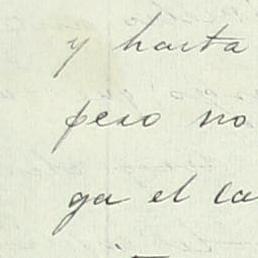 y hasta
pero no
ga el ca